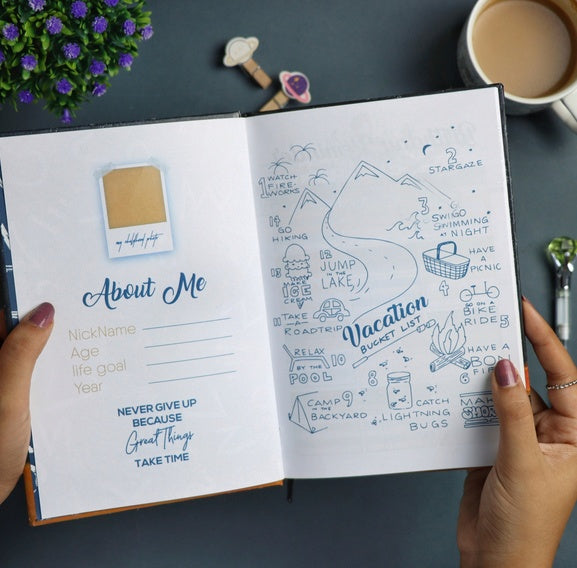 my childhood photo
About Me
NickName
Age
life goal
Year
NEVER GIVE UP
BECAUSE
Great Things
TAKE TIME
1 WATCH
FIRE-
WORKS
2
STARGAZE
3
GO
SWIMMING
AT NIGHT
14
GO
HIKING
HAVE
A
PICNIC
4
13
MAKE
ICE
CREAM
12
JUMP
IN THE
LAKE
GO ON A
BIKE
RIDE 5
11
TAKE
A
ROADTRIP
Vacation
BUCKET LIST
RELAX
BY THE
POOL
10
HAVE A
BON
FI
8
CATCH
LIGHTNING
BUGS
CAMP 9
IN THE
BACKYARD
MAK